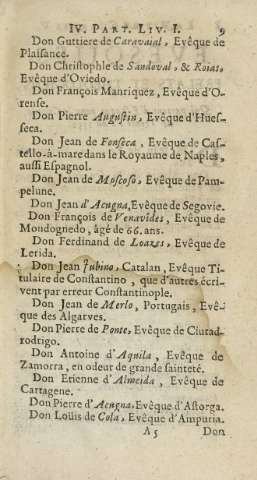 IV. PART. LIV. I. 9
Don Guttiere de Caravaial, Evêque de
Plaisance.
Don Christophle de Sandoval, & Roias,
Evêque d'Oviedo.
Don François Manriquez, Evêque d'O-
rense.
Don Pierre Augustin, Evêque d'Hues-
seca.
Don Jean de Fonseca, Evêque de Cas-
tello-à-mare dans le Royaume de Naples,
aussi Espagnol.
Don Jean de Moscoso, Evêque de Pam-
pelune.
Don Jean d'Acugna, Evêque de Segovie.
Don François de Venavides, Evêque de
Mondognedo, âgé de 66. ans.
Don Ferdinand de Loazes, Evêque de
Lerida.
Don Jean Jubino, Catalan, Evêque Ti-
tulaire de Constantino, que d'autres écri-
vent par erreur Constantinople.
Don Jean de Merlo, Portugais, Evê-
que des Algarves.
Don Pierre de Ponte, Evêque de Ciutad-
rodrigo.
Don Antoine d'Aquila, Evêque de
Zamorra, en odeur de grande sainteté.
Don Etienne d'Almeida, Evêque de
Cartagene.
Don Pierre d'Acugna, Evêque d'Astorga.
Don Loüis de Cola, Evêque d'Ampuria.
A 5 Don